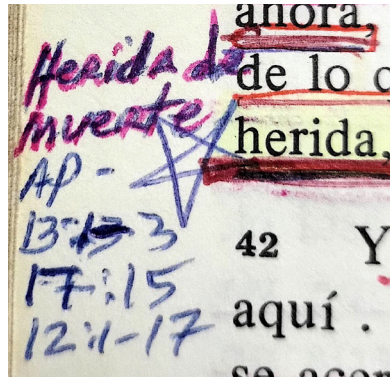 Herida de
muerte
AP -
13:13-3
17:15
12:1-17
ahora,
de lo
herida,
42 Y
aquí .